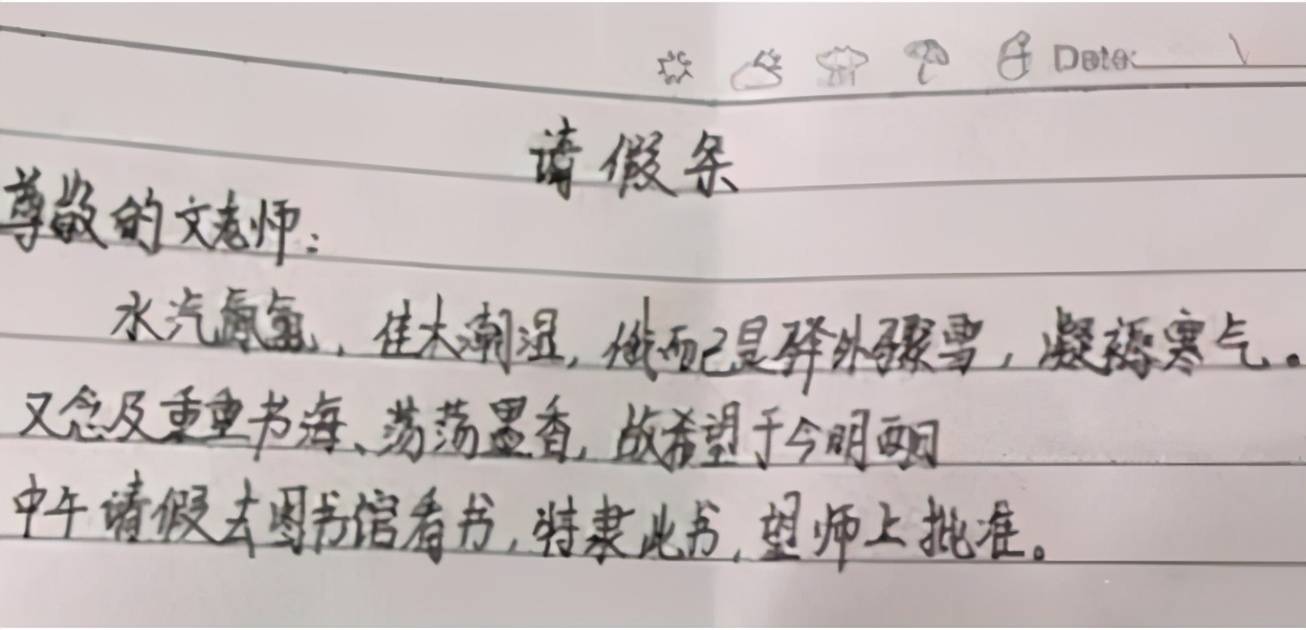 Date:
请假条
尊敬的文老师:
水汽氤氲,佳木潮湿,俄而已是驿外骤雪,凝凝寒气。
又念及重重书海、荡荡墨香,故希望于今明两日
中午请假去图书馆看书,特隶此书,望师上批准。